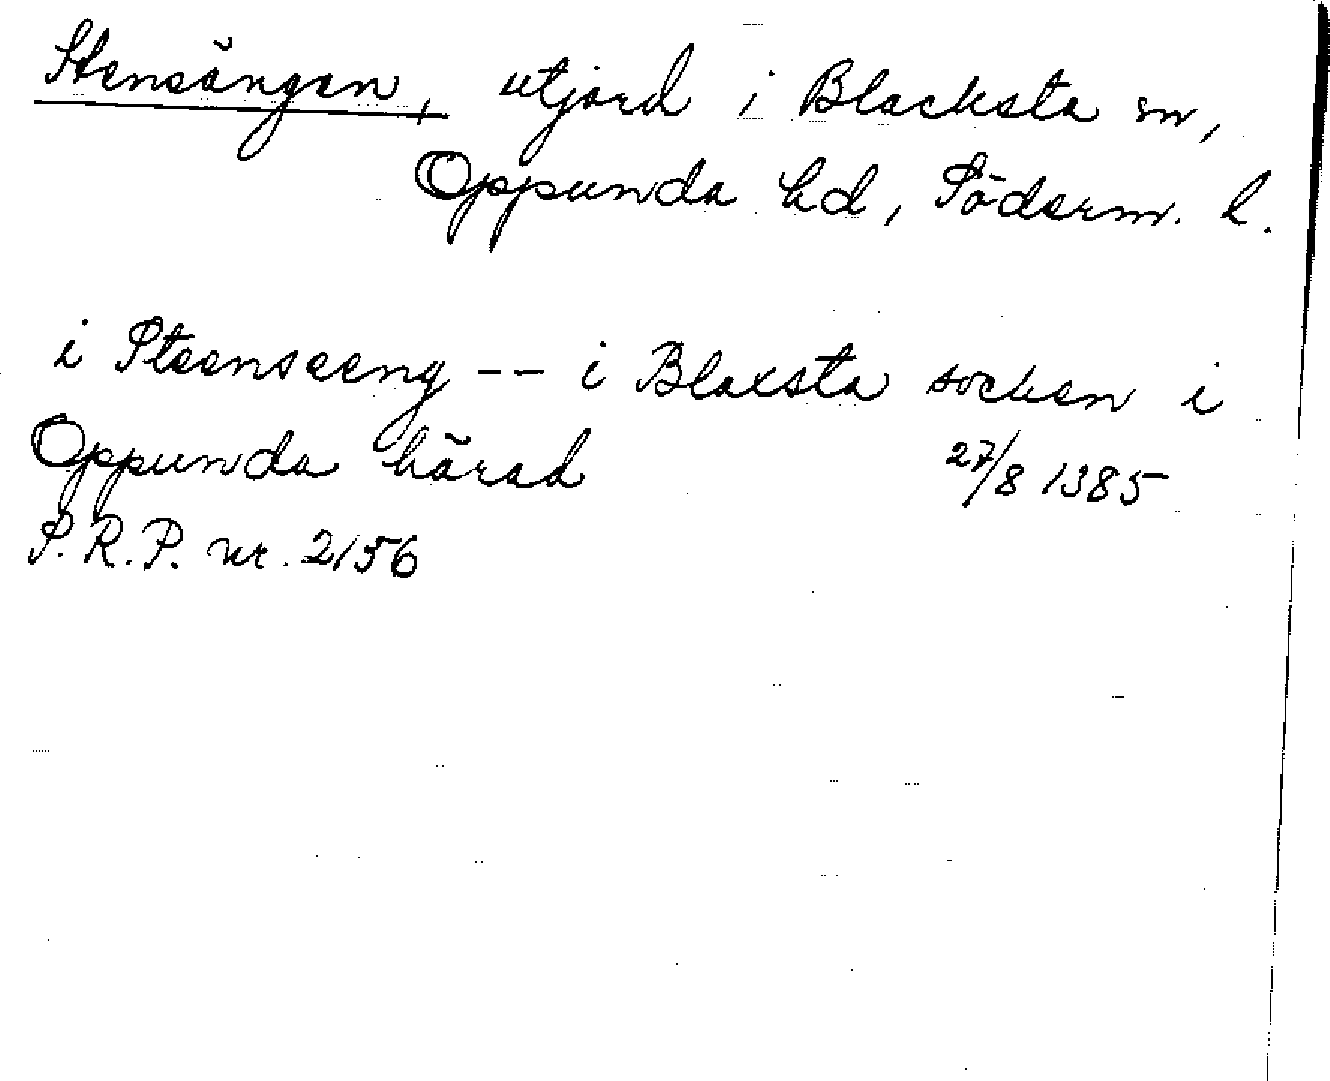 Stensängen, utjord i Blacksta sn,
Oppunda hd, Söderm. l.
i Steenseeng -- i Blaxsta socken i
Oppunda härad 27/8 1385
S.R.P. nr. 2156